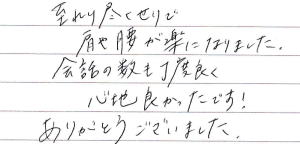 至れり尽くせりで
肩や腰が楽になりました。
会話の数も丁度良く
心地良かったです!
ありがとうございました。